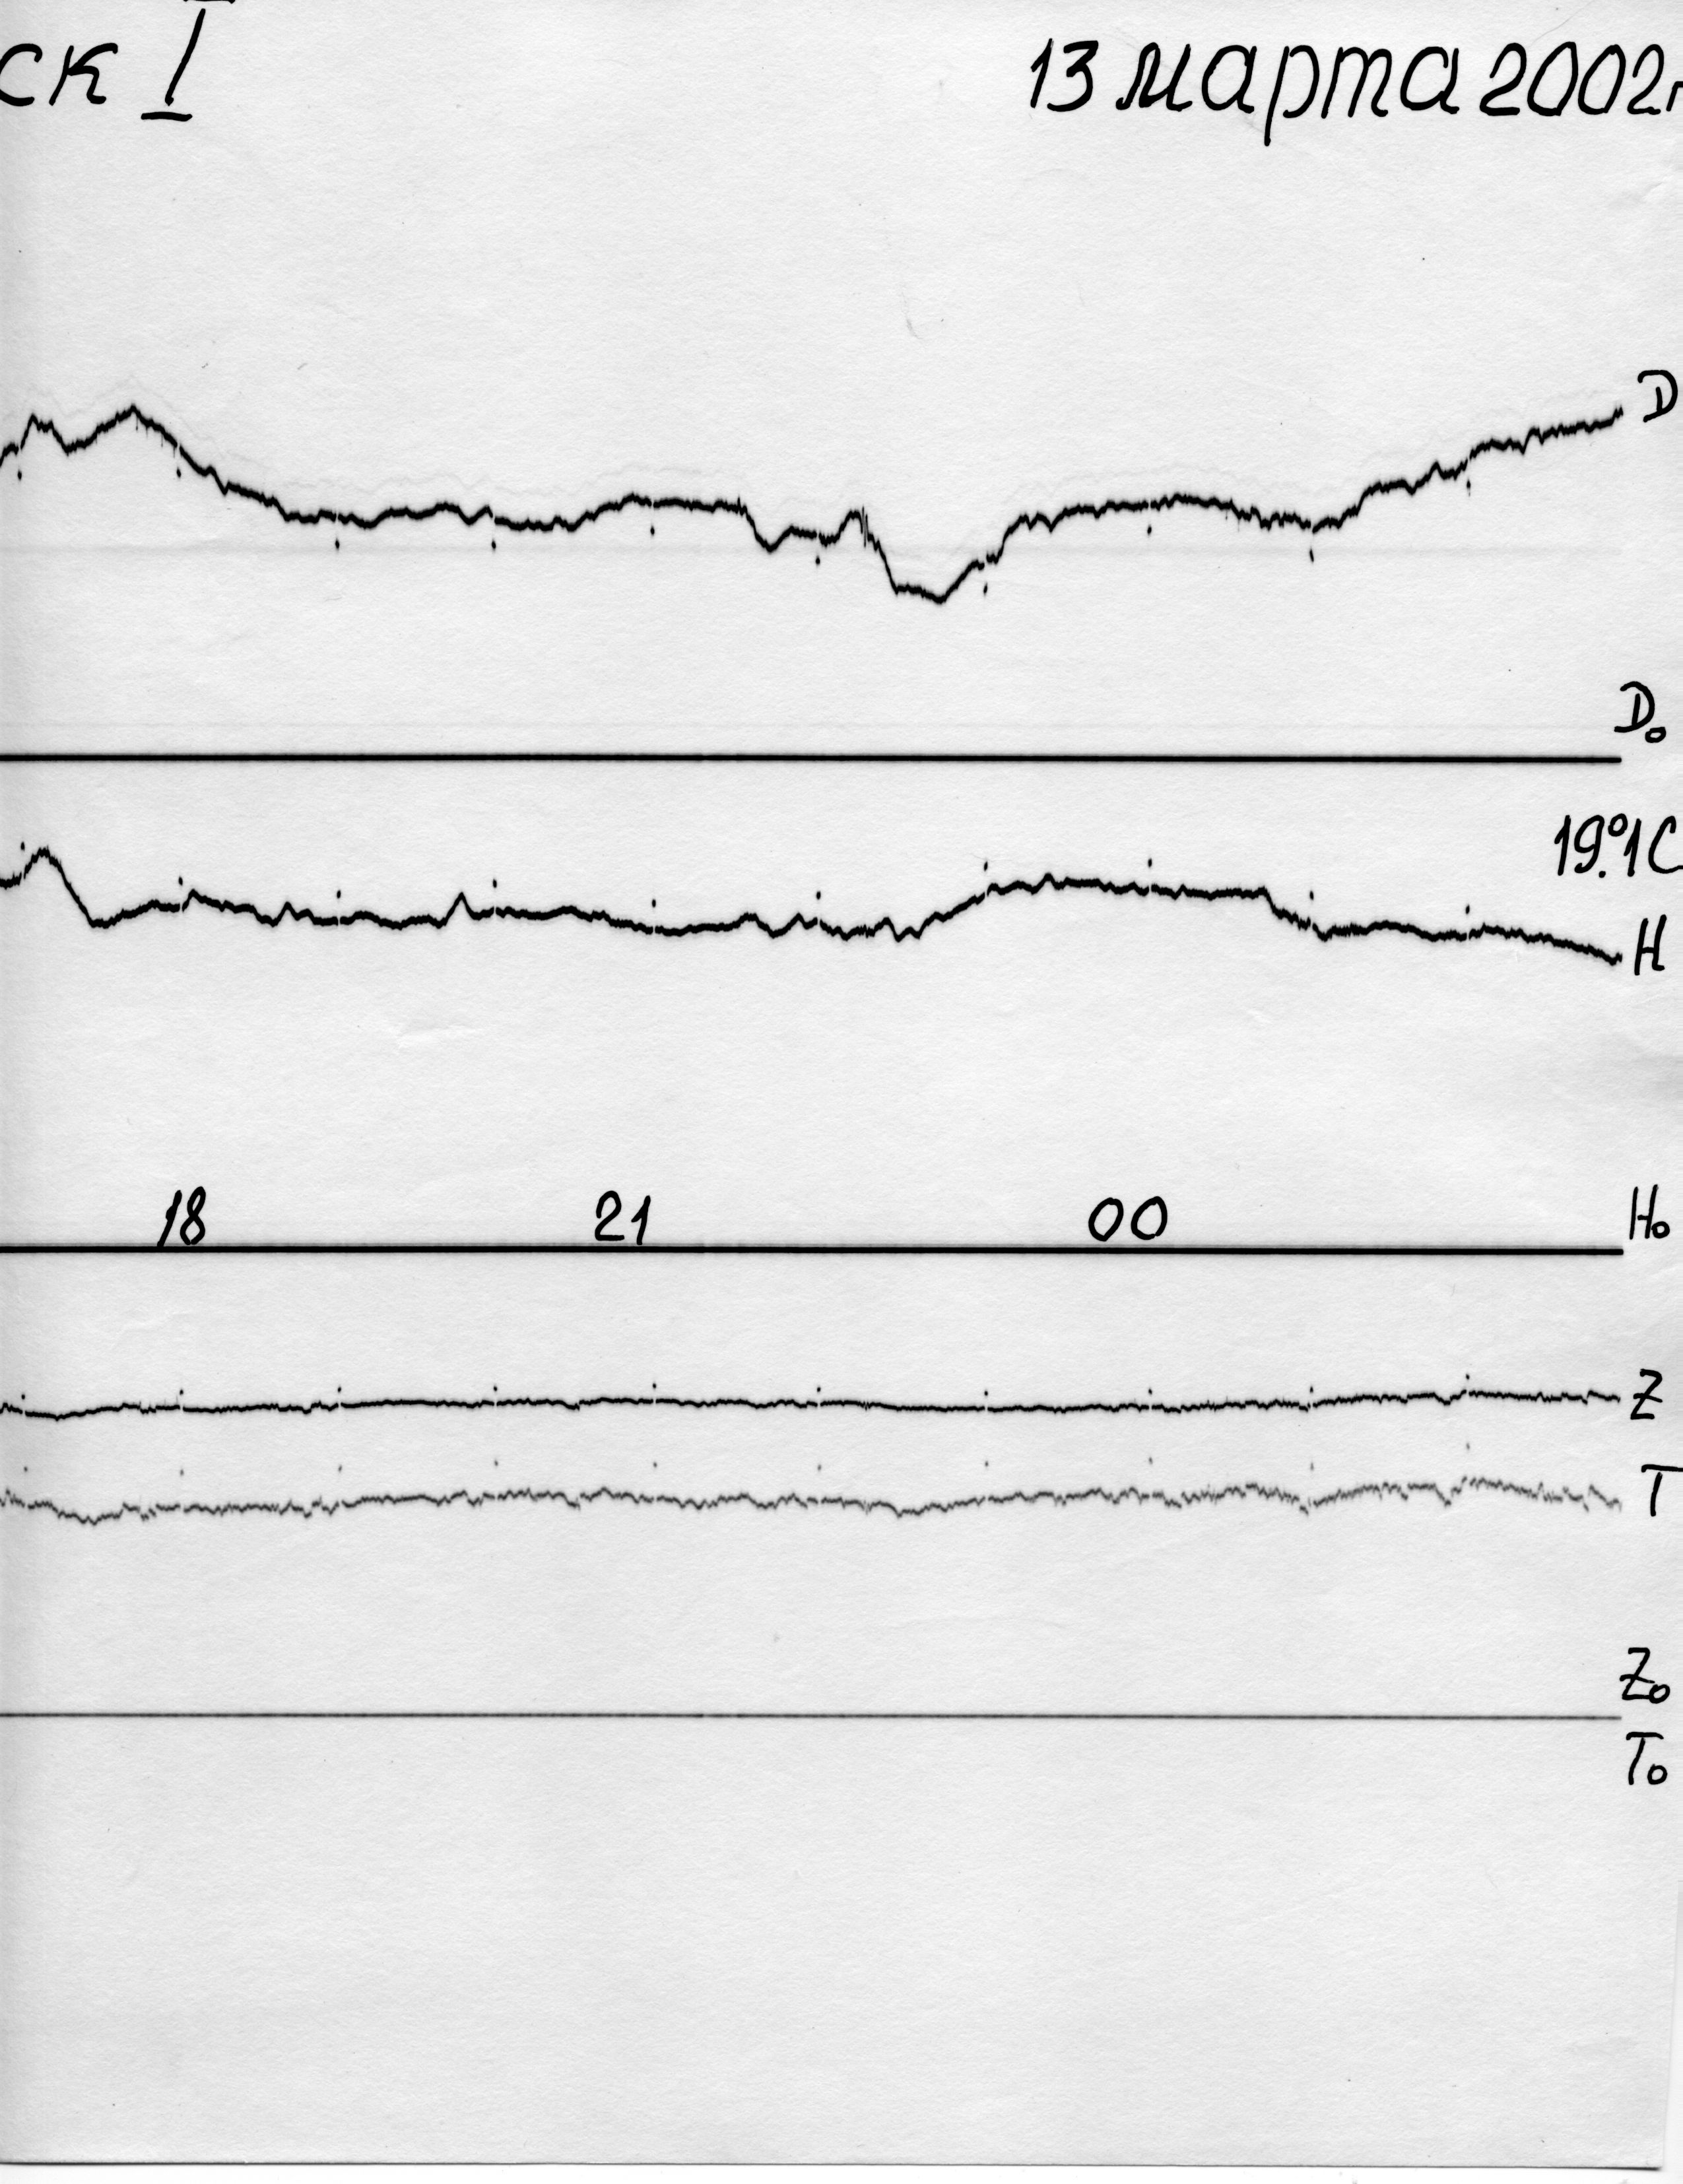 ск I 13 марта 2002г
D
D₀
19°.1C
H
18 21 00 H₀
Z
T
Z₀
T₀